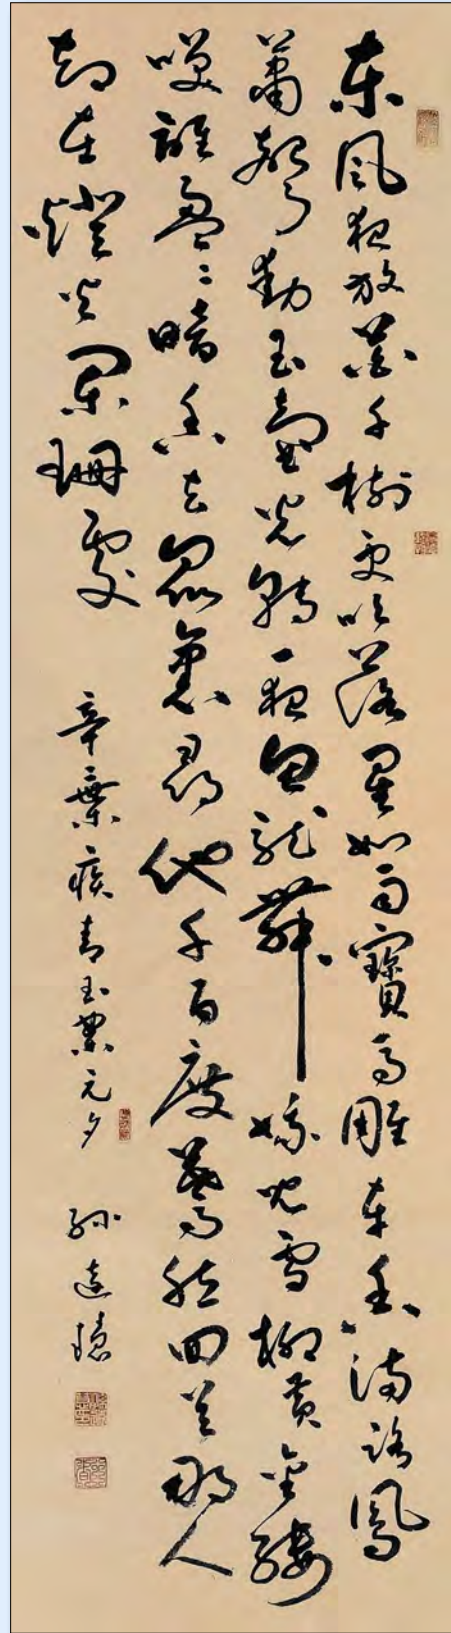 東風夜放花千樹更吹落星如雨寶馬雕車香滿路鳳
簫聲動玉壺光轉一夜魚龍舞蛾兒雪柳黃金縷
笑語盈〻暗香去眾裏尋他千百度驀然回首那人
却在燈火闌珊處 辛棄疾青玉案元夕 孫遠